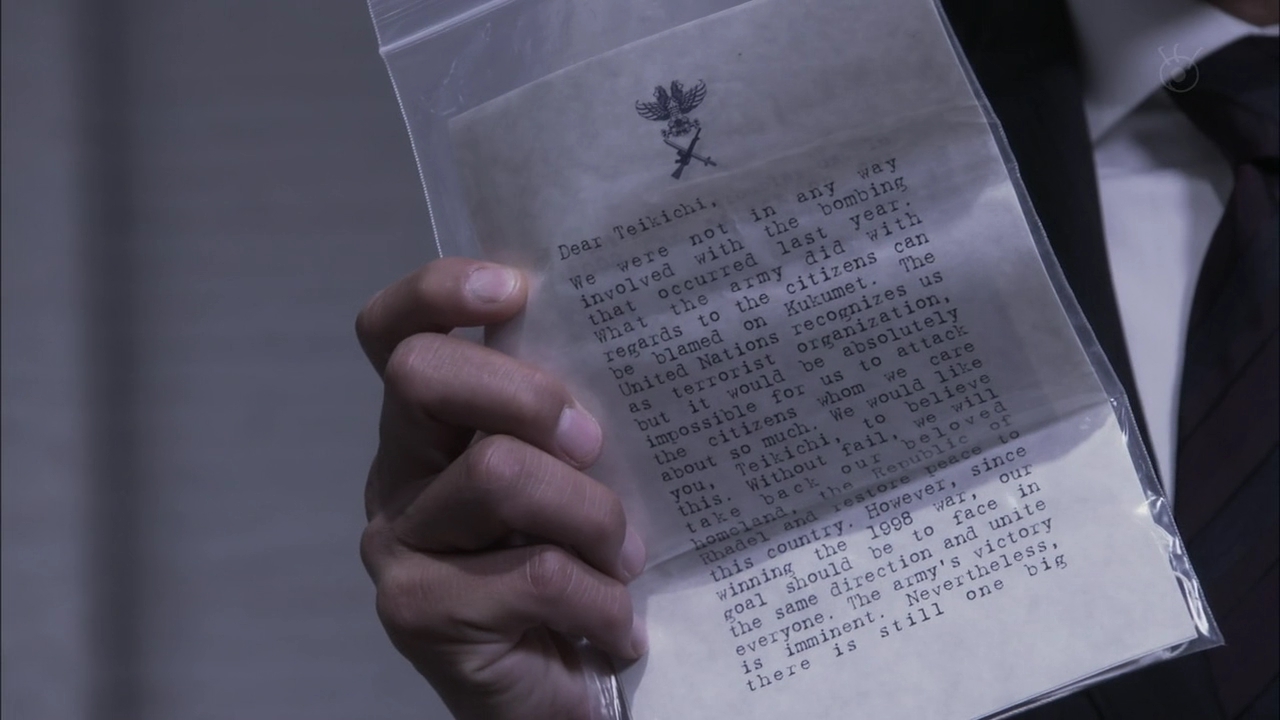 Dear Teikichi,
We were not in any way
involved with the bombing
that occurred last year.
What the army did with
regards to the citizens can
be blamed on Kukumet. The
United Nations recognizes us
as terrorist organization,
but it would be absolutely
impossible for us to attack
the citizens whom we care
about so much. We would like
you, Teikichi, to believe
this. Without fail, we will
take back our beloved
homeland, the Republic of
Rhadel and restore peace to
this country. However, since
winning the 1998 war, our
goal should be to face in
the same direction and unite
everyone. The army's victory
is imminent. Nevertheless,
there is still one big